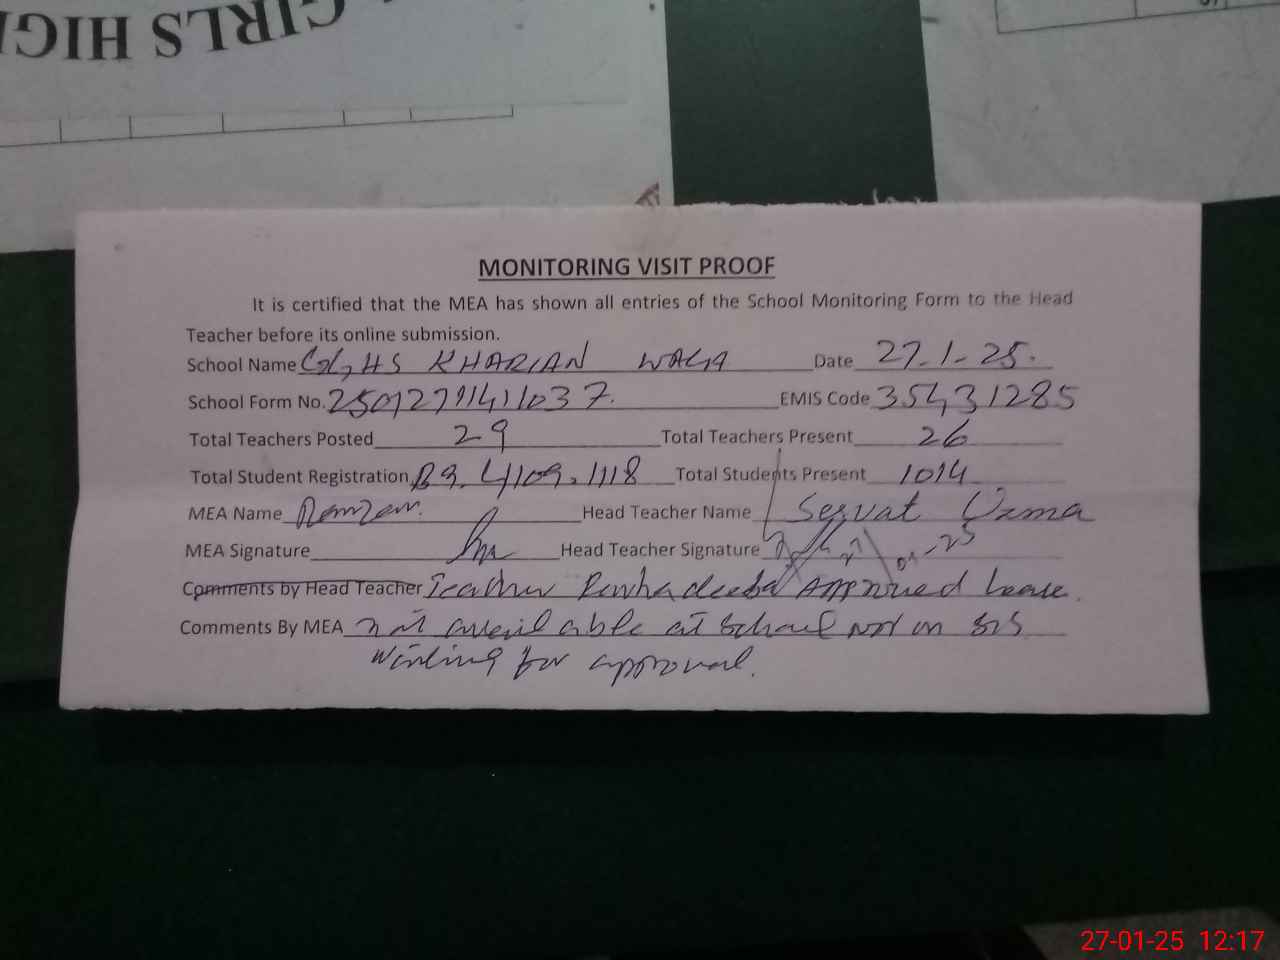 GIRLS HIGH
MONITORING VISIT PROOF
It is certified that the MEA has shown all entries of the School Monitoring Form to the Head
Teacher before its online submission.
School Name GGHS KHARIAN WALA Date 27-1-25.
School Form No. 2501279141037. EMIS Code 35431285
Total Teachers Posted 29 Total Teachers Present 26
Total Student Registration 1118 Total Students Present 1014
MEA Name Ramzan. Head Teacher Name Servat Uzma
MEA Signature Head Teacher Signature 27-01-25
Comments by Head Teacher Teacher Approved Leave.
Comments By MEA not available at School not on SIS
waiting for approval.
27-01-25 12:17